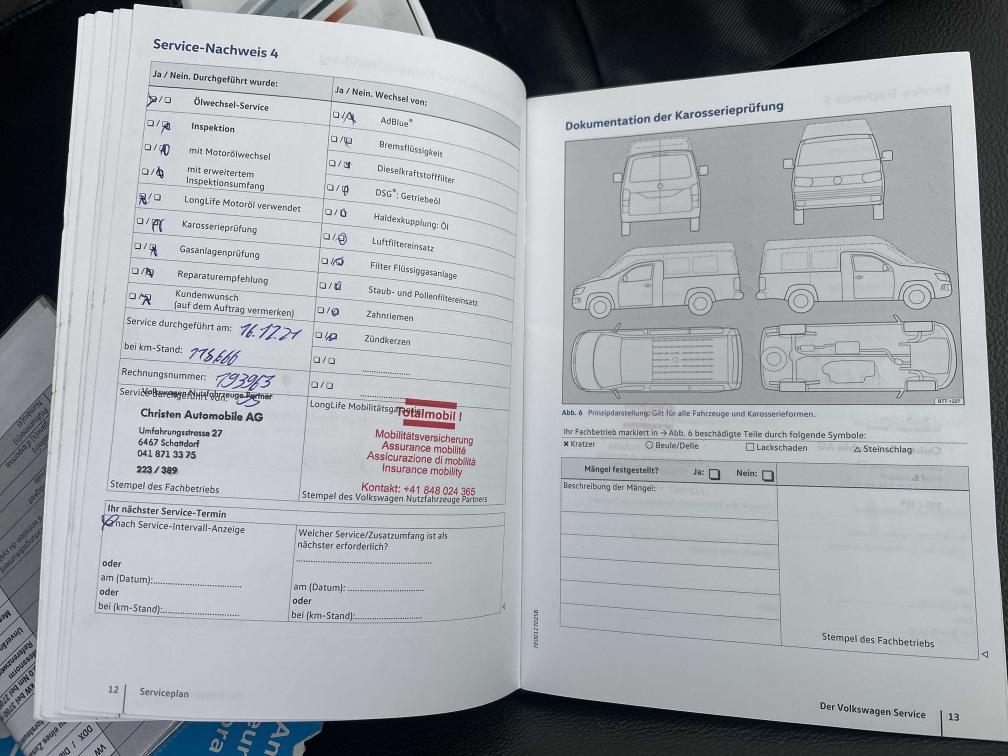 Service-Nachweis 4
Ja / Nein. Durchgeführt wurde:
Ölwechsel-Service
Inspektion
mit Motorölwechsel
mit erweitertem
Inspektionsumfang
LongLife Motoröl verwendet
Karosserieprüfung
Gasanlagenprüfung
Reparaturempfehlung
Kundenwunsch
(auf dem Auftrag vermerken)
Service durchgeführt am: 16.12.21
bei km-Stand: 115666
Rechnungsnummer: 193963
Service durchgeführt von:
Volkswagen Nutzfahrzeuge Partner
Christen Automobile AG
Umfahrungsstrasse 27
6467 Schattdorf
041 871 33 75
223 / 389
Stempel des Fachbetriebs
Ja / Nein. Wechsel von:
AdBlue®
Bremsflüssigkeit
Dieselkraftstofffilter
DSG®: Getriebeöl
Haldexkupplung: Öl
Luftfiltereinsatz
Filter Flüssiggasanlage
Staub- und Pollenfiltereinsatz
Zahnriemen
Zündkerzen
LongLife Mobilitätsgarantie
Totalmobil !
Mobilitätsversicherung
Assurance mobilité
Assicurazione di mobilità
Insurance mobility
Kontakt: +41 848 024 365
Stempel des Volkswagen Nutzfahrzeuge Partners
Ihr nächster Service-Termin
nach Service-Intervall-Anzeige
oder
am (Datum):
oder
bei (km-Stand):
Welcher Service/Zusatzumfang ist als
nächster erforderlich?
am (Datum):
oder
bei (km-Stand):
12 Serviceplan
Dokumentation der Karosserieprüfung
BTT-1227
Abb. 6 Prinzipdarstellung: Gilt für alle Fahrzeuge und Karosserieformen.
Ihr Fachbetrieb markiert in → Abb. 6 beschädigte Teile durch folgende Symbole:
× Kratzer ○ Beule/Delle □ Lackschaden △ Steinschlag
Mängel festgestellt? Ja: □ Nein: □
Beschreibung der Mängel:
Stempel des Fachbetriebs
7E0012702SB
Der Volkswagen Service 13